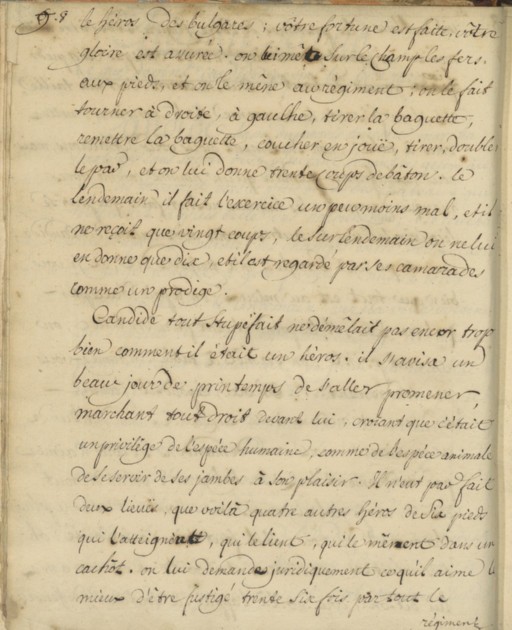 8
le héros des bulgares; vôtre fortune est faitte, vôtre
gloire est assurée. on lui mèt sur le champ les fers
aux pieds, et on le mêne au régiment; on le fait
tourner à droite, à gaulhe, tirer la baguette,
remettre la baguette, coucher en joüe, tirer, doubler
le pas, et on lui donne trente coups de bâton. le
lendemain il fait l'exercice un peu moins mal, et il
ne reçoit que vingt coups, le surlendemain on ne lui
en donne que dix, et il est regardé par ses camarades
comme un prodige.
Candide tout stupéfait ne démêlait pas encor trop
bien comment il était un héros. il s'avisa un
beau jour de printemps de s'aller promener,
marchant tout droit devant lui, croiant que c'était
un privilige de l'espéce humaine, comme de l'espéce animale
de se servir de ses jambes à son plaisir. Il n'eut pas fait
deux lieuës, que voilà quatre autres héros de six pieds
qui l'atteignent, qui le lient, qui le mênent dans un
cachot. on lui demande juridiquement ce qu'il aime le
mieux d'être fustigé trente six fois par tout le
régiment